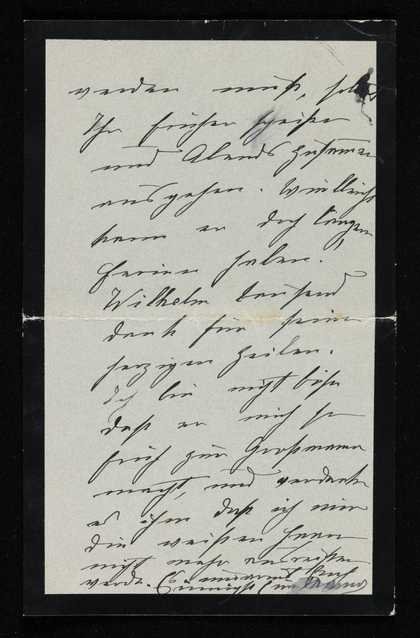 werden muß, selbst
Ihr früher speißen
und Abends zusammen
ausgehen. Vielleicht
kann er doch länger
Ferien haben.
Wilhelm tausend
dank für seine
herzigen Zeilen.
Ich bin nicht böse
daß er mich so
früh zur Großmama
macht, und verdanke
es ihm daß ich mir
die weißen Haare
nicht mehr ausreißen
werde. Es umarmt Euch